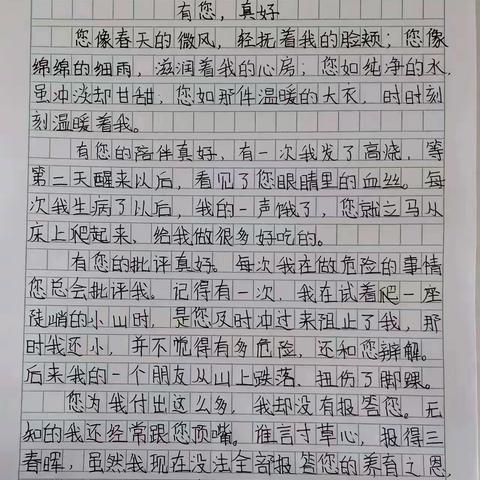 有您，真好
您像春天的微风，轻抚着我的脸颊；您像
绵绵的细雨，滋润着我的心房；您如纯净的水，
虽冲淡却甘甜；您如那件温暖的大衣，时时刻
刻温暖着我。
有您的陪伴真好，有一次我发了高烧，等
第二天醒来以后，看见了您眼睛里的血丝。每
次我生病了以后，我的一声饿了，您就立马从
床上爬起来，给我做很多好吃的。
有您的批评真好。每次我在做危险的事情
您总会批评我。记得有一次，我在试着爬一座
陡峭的小山时，是您及时冲过来阻止了我，那
时我还小，并不觉得有多危险，还和您辩解。
后来我的一个朋友从山上跌落，扭伤了脚踝。
您为我付出这么多，我却没有报答您。无
知的我还经常跟您顶嘴。谁言寸草心，报得三
春晖，虽然我现在没法全部报答您的养育之恩，